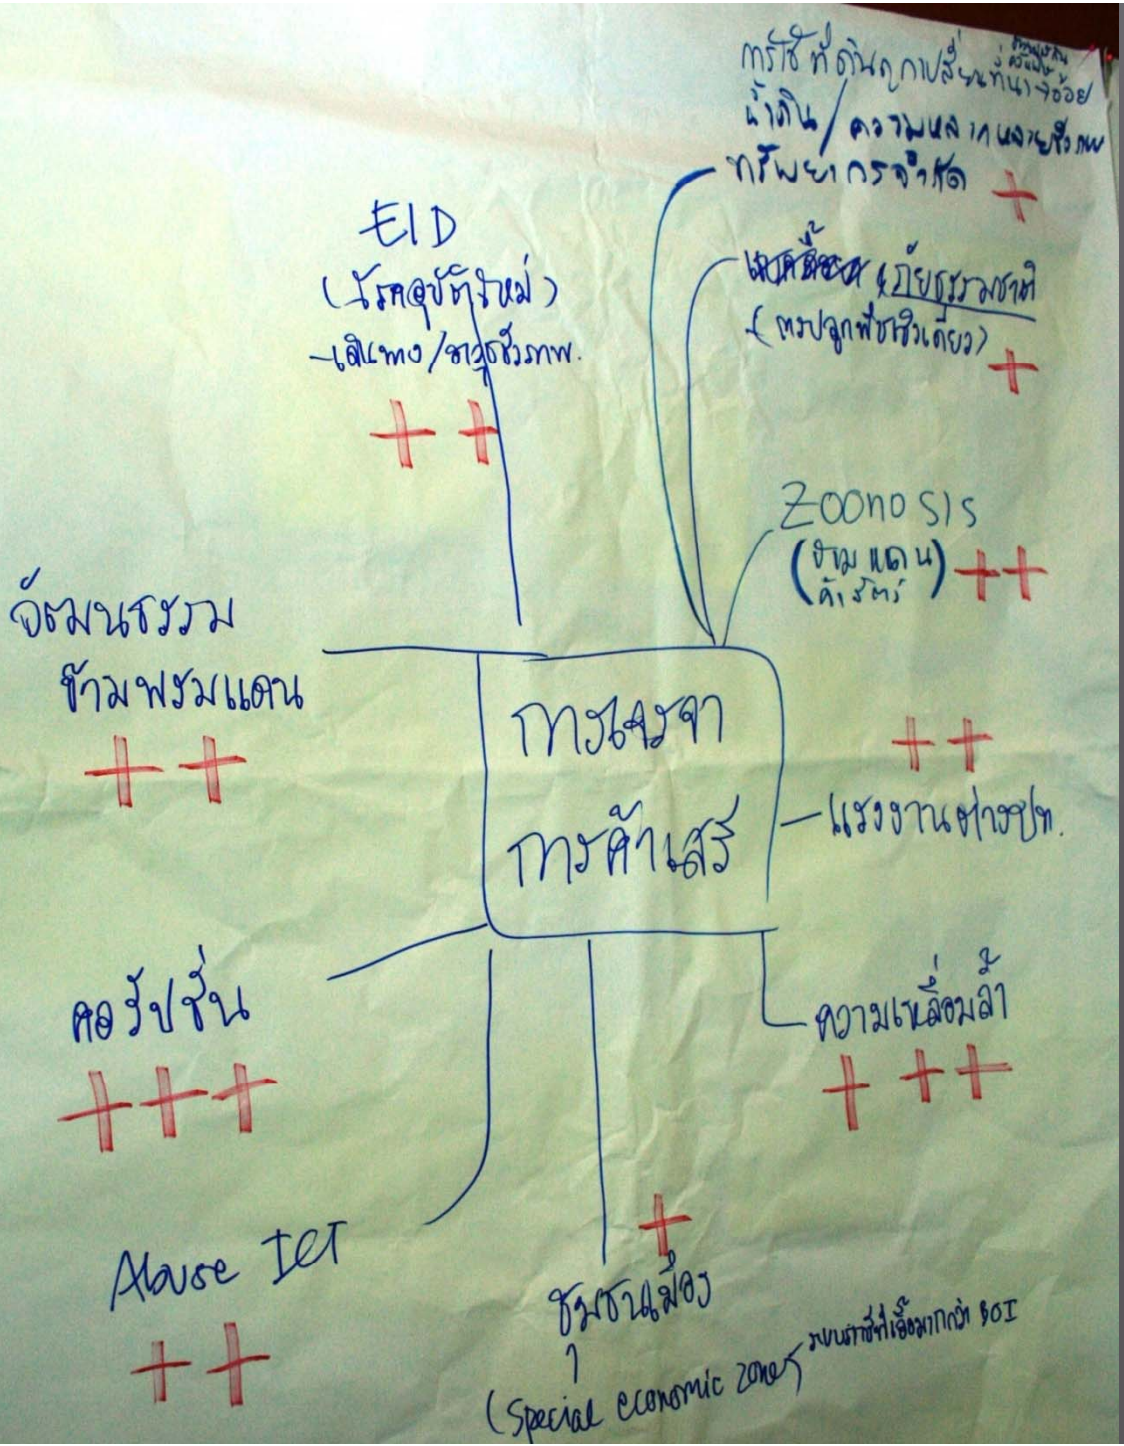 การใช้ที่ดินถูกเปลี่ยนที่นา → อ้อย
น้ำ ดิน / ความหลากหลายชีวภาพ
ทรัพยากรจำกัด +
ภัยธรรมชาติ
(การปลูกพืชเชิงเดี่ยว)
+
EID
(โรคอุบัติใหม่)
- เดินทาง / อาวุธชีวภาพ.
+ +
Zoonosis
(ข้ามแดน
ค้าสัตว์) ++
วัฒนธรรม
ข้ามพรมแดน
+ +
การเจรจา
การค้าเสรี
++
แรงงานต่างปท.
คอรัปชั่น
+++
ความเหลื่อมล้ำ
+ ++
Abuse ICT
++
+
ชุมชนเมือง
(Special economic zone)